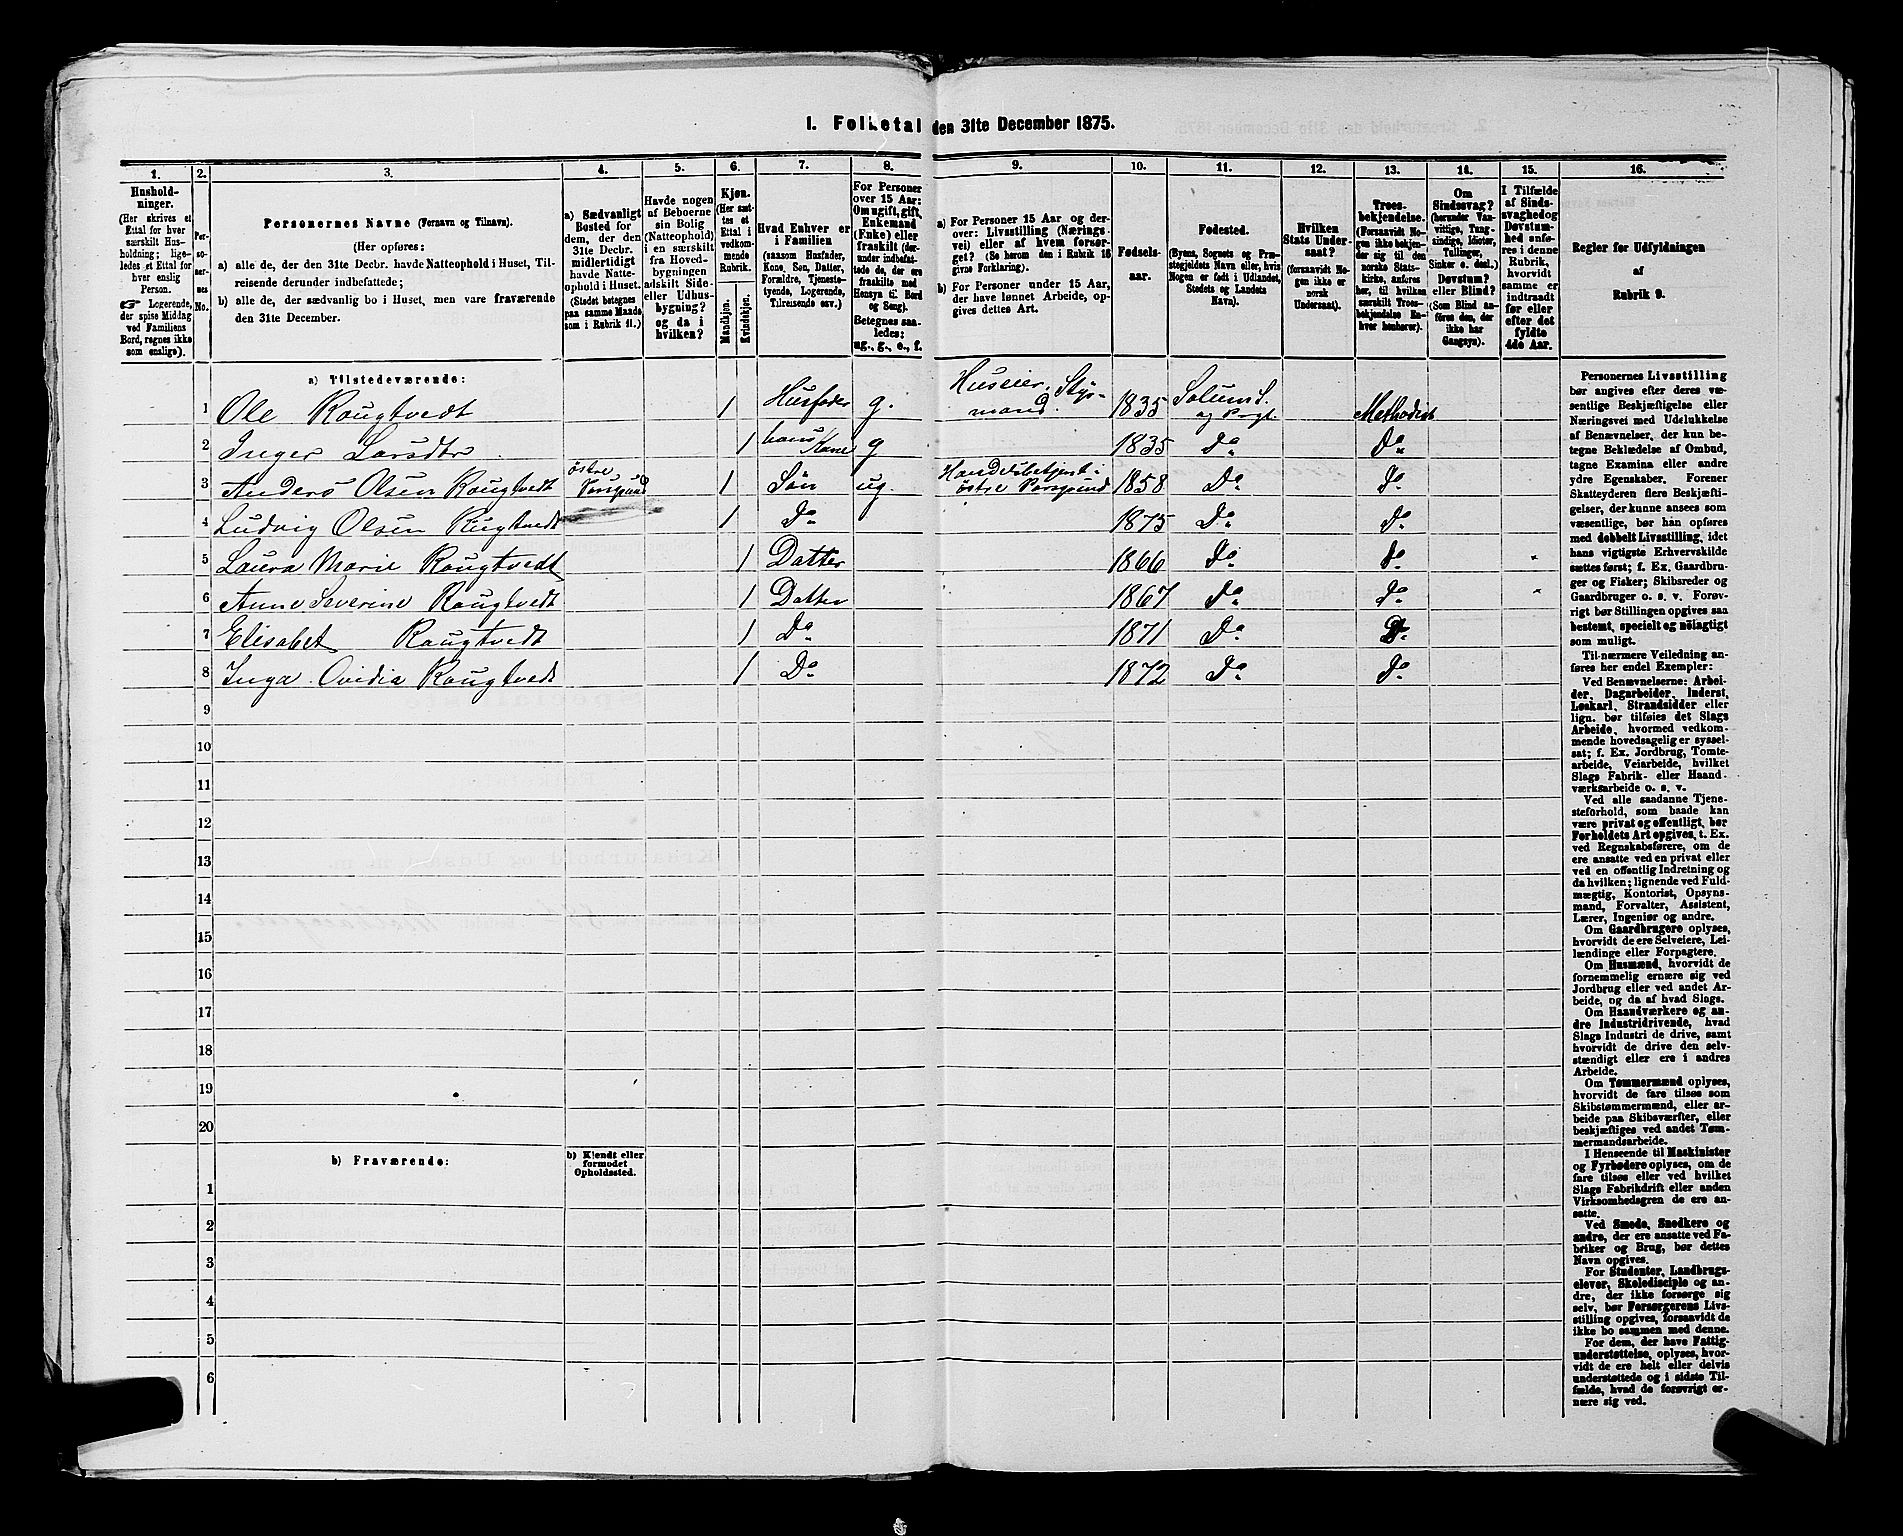 1. Folketal den 31te December 1875.
1.
2.
3.
4.
5.
6.
7.
8.
9.
10.
11.
12.
13.
14.
15.
16.
Hushold-
ninger.
(Her skrives et
Ettal for hver
særskilt Hus-
holdning; lige-
ledes et Ettal for
hver enslig
Person.
☞ Logerende,
der spise Middag
ved Familiens
Bord, regnes ikke
som enslige).
Per-
so-
ner-
nes
No.
Personernes Navne (Fornavn og Tilnavn).
(Her opføres:
a) alle de, der den 31te Decbr. havde Natteophold i Huset, Til-
reisende derunder indbefattede;
b) alle de, der sædvanlig bo i Huset, men vare fraværende
den 31te December.
a) Sædvanligt
Bosted for
dem, der den
31te Decbr.
midlertidigt
havde Natte-
ophold i Huset.
(Stedet betegnes
paa samme Maade
som i Rubrik 11.)
Havde nogen
af Beboerne
sin Bolig
(Natteophold)
i en særskilt
fra Hoved-
bygningen
adskilt Side-
eller Udhus-
bygning?
og da i
hvilken?
Kjøn.
(Her sæt-
tes et
Ettal i
vedkom-
mende
Rubrik.
Mandkjøn.
Kvindekjøn.
Hvad Enhver er
i Familien
(saasom Husfader,
Kone, Søn, Datter,
Forældre, Tjeneste-
tyende, Logerende,
Tilreisende osv.)
For Personer
over 15 Aar:
Om ugift, gift,
Enkemand
(Enke) eller
fraskilt (der-
under indbefat-
tede de, der ere
fraskilte med
Hensyn til Bord
og Seng).
Betegnes saa-
ledes:
ug., g., e., f.
a) For Personer 15 Aar og der-
over: Livsstilling (Nærings-
vei) eller af hvem forsør-
get? (Se herom den i Rubrik 16
givne Forklaring).
b) For Personer under 15 Aar,
der have lønnet Arbeide, op-
gives dettes Art.
Fødsels-
aar.
Fødested.
(Byens, Sognets og Præ-
stegjeldets Navn eller, hvis
Nogen er født i Udlandet,
Stedets og Landets
Navn).
Hvilken
Stats Under-
saat?
(forsaavidt No-
gen ikke er
norsk
Undersaat).
Troes-
bekjendelse.
(Forsaavidt No-
gen ikke bekjen-
der sig til den
norske Stats-
kirke, anføres
her, til hvilken
særskilt Troes-
bekjendelse En-
hver henhører).
Om
Sindssvag?
(herunder Van-
vittige, Tung-
sindige, Idioter,
Tullinger,
Sinker o. desl.)
Døvstum?
eller Blind?
(Som Blind an-
føres den, der
ikke har
Gangsyn).
I Tilfælde
af Sinds-
svaghed og
Døvstum-
hed anfø-
res i denne
Rubrik,
hvorvidt
samme er
indtraadt
før eller
efter det
fyldte
4de Aar.
Regler for Udfyldningen
af
Rubrik 9.
a) Tilstedeværende:
1 Ole Rougtvedt 1 Husfader g. Huseier, Styr-mand. 1835 Solum S. og Prgt. Methodist
2 Inger Larsdtr 1 hans Kone g 1835 Do Do
3 Anders Olsen Rougtvedt østre Porsgrund 1 Søn ug. Handelsbetjent i østre Porsgrund 1858 Do Do
4 Ludvig Olsen Rougtvedt 1 Do 1875 Do Do
5 Laura Marie Rougtvedt 1 Datter 1866 Do Do
6 Anne Severine Rougtvedt 1 Datter 1867 Do Do
7 Elisabet Rougtvedt 1 Do 1871 Do Do
8 Inga Ovidia Rougtvedt 1 Do 1872 Do Do
9
10
11
12
13
14
15
16
17
18
19
20
b) Fraværende:
b) Kjendt eller
formodet
Opholdssted.
1
2
3
4
5
6
Personernes Livsstilling
bør angives efter deres væ-
sentlige Beskjæftigelse eller
Næringsvei med Udelukkelse
af Benævnelser, der kun be-
tegne Beklædelse af Ombud,
tagne Examina eller andre
ydre Egenskaber. Forener
Skatteyderen flere Beskjæfti-
gelser, der kunne ansees som
væsentlige, bør han opføres
med dobbelt Livsstilling, idet
hans vigtigste Erhvervskilde
sættes først; f. Ex. Gaardbru-
ger og Fisker; Skibsreder og
Gaardbruger o. s. v. Forøv-
rigt bør Stillingen opgives saa
bestemt, specielt og nöiagtigt
som muligt.
Til nærmere Veiledning an-
føres her endel Exempler:
Ved Benævnelserne: Arbei-
der, Dagarbeider, Inderst,
Løskarl, Strandsidder eller
lign. bør tilføies det Slags
Arbeide, hvormed vedkom-
mende hovedsagelig er syssel-
sat; f. Ex. Jordbrug, Tomte-
arbeide, Veiarbeide, hvilket
Slags Fabrik- eller Haand-
værksarbeide o. s. v.
Ved alle saadanne Tjene-
steforhold, som baade kan
være privat og offentligt, bør
Forholdets Art opgives, t. Ex.
ved Regnskabsførere, om de
ere ansatte ved en privat eller
ved en offentlig Indretning og
da hvilken; lignende ved Fuld-
mægtig, Kontorist, Opsyns-
mand, Forvalter, Assistent,
Lærer, Ingeniør og andre.
Om Gaardbrugere oplyses,
hvorvidt de ere Selveiere, Lei-
lændinge eller Forpagtere.
Om Husmænd, hvorvidt de
fornemmelig ernære sig ved
Jordbrug eller ved andet Ar-
beide, og da af hvad Slags.
Om Haandværkere og an-
dre Industridrivende, hvad
Slags Industri de drive, samt
hvorvidt de drive den selv-
stændigt eller ere i andres
Arbeide.
Om Tømmermænd oplyses,
hvorvidt de fare tilsøs som
Skibstømmermænd, eller ar-
beide paa Skibsværfter, eller
beskjæftiges ved andet Tøm-
mermandsarbeide.
I Henseende til Maskinister
og Fyrbødere oplyses, om de
fare tilsøs eller ved hvilket
Slags Fabrikdrift eller anden
Virksomhedsgren de ere an-
satte.
Ved Smede, Snedkere og
andre, der ere ansatte ved Fa-
briker og Brug, bør dettes
Navn opgives.
For Studenter, Landbrugs-
elever, Skoledisciple og an-
dre, der ikke forsørge sig
selv, bør Forsørgerens Livs-
stilling opgives, forsaavidt de
ikke bo sammen med denne.
For dem, der have Fattig-
understøttelse, oplyses, hvor-
vidt de ere helt eller delvis
understøttede og i sidste Til-
fælde, hvad de forøvrigt er-
nære sig ved.